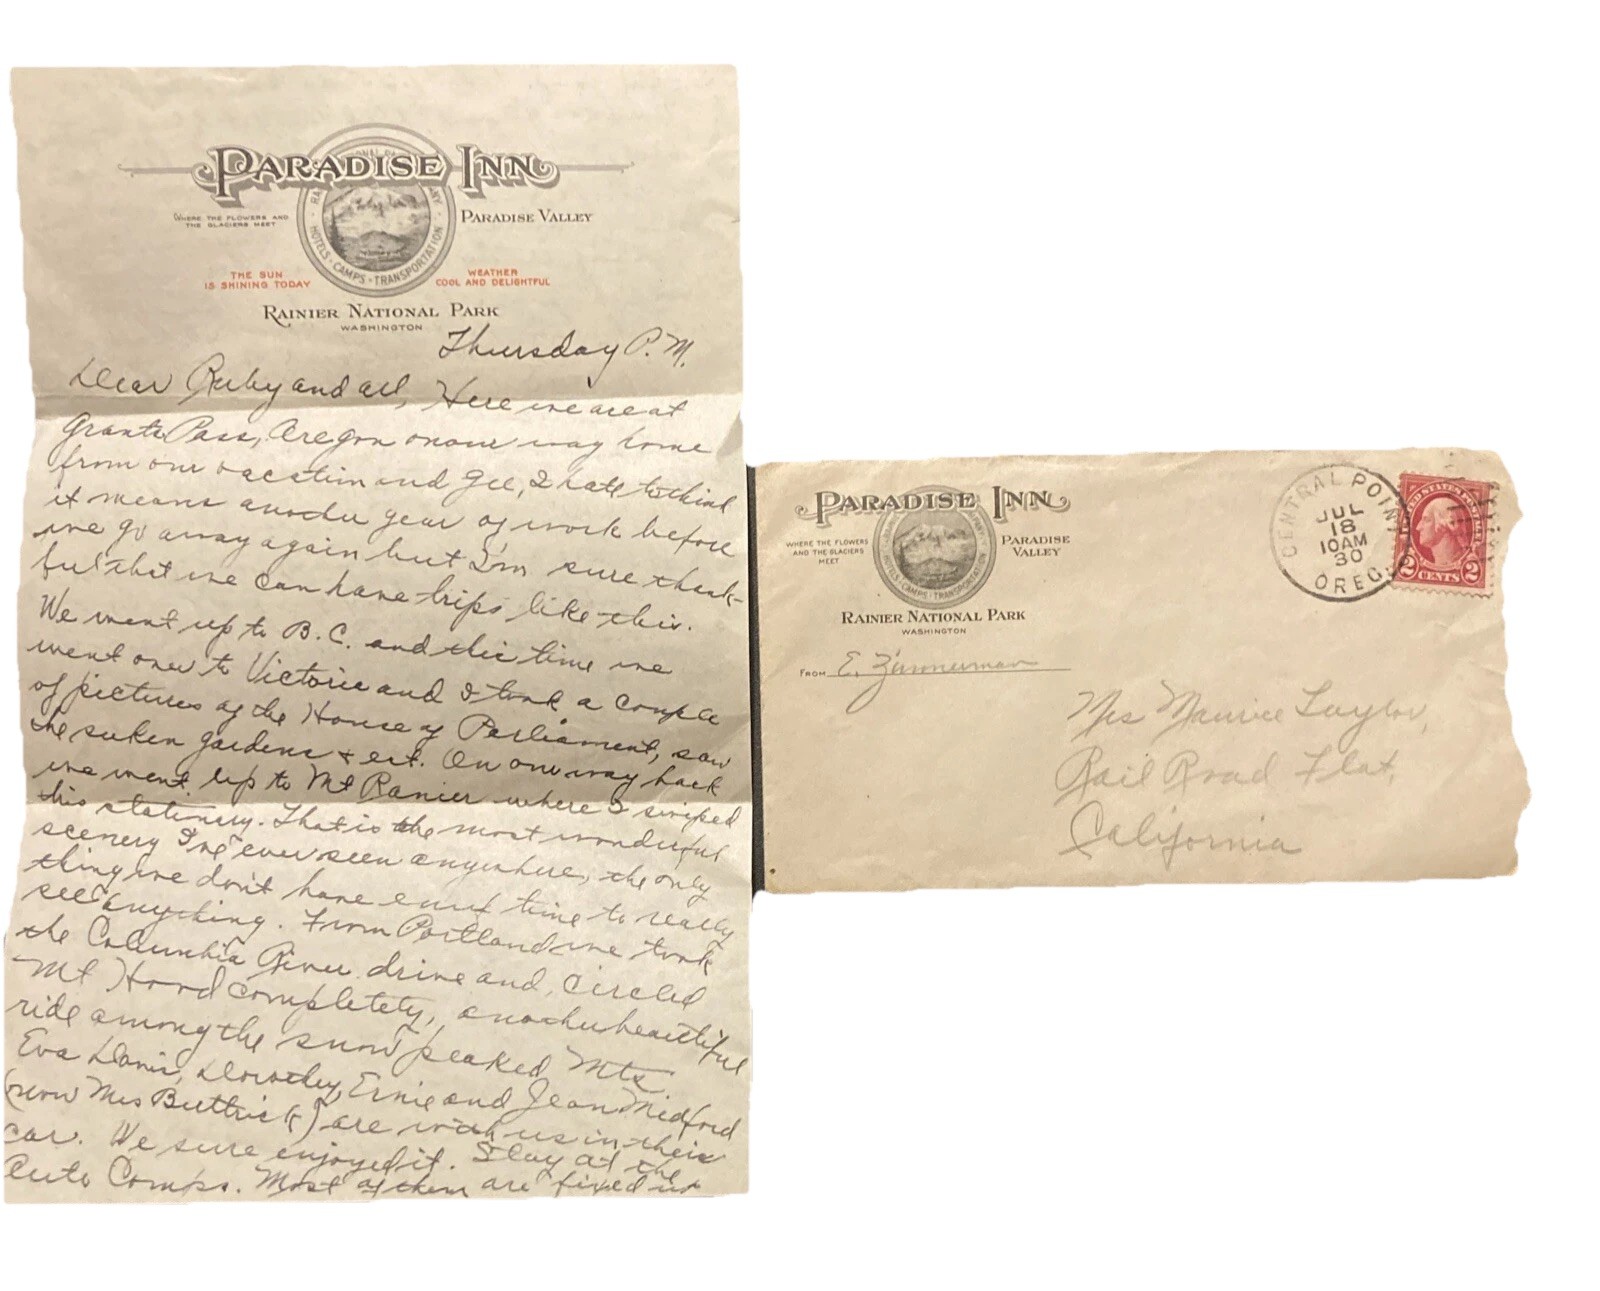 PARADISE INN
RAINIER NATIONAL PARK COMPANY
HOTELS · CAMPS · TRANSPORTATION
WHERE THE FLOWERS AND
THE GLACIERS MEET
PARADISE VALLEY
THE SUN
IS SHINING TODAY
WEATHER
COOL AND DELIGHTFUL
RAINIER NATIONAL PARK
WASHINGTON
Thursday P.M.
Dear Ruby and all, Here we are at
Grants Pass, Oregon on our way home
from our vacation and Gee, I hate to think
it means another year of work before
we go away again but I'm sure thank-
ful that we can have trips like this.
We went up to B.C. and this time we
went over to Victoria and I took a couple
of pictures of the House of Parliament, saw
the suken gardens & ect. On our way back
we went up to Mt Ranier where I swiped
this stationery. That is the most wonderful
scenery I've ever seen anywhere, the only
thing we don't have enuf time to really
see anything. From Portland we took
the Columbia River drive and, circled
Mt Hood completely, another beautiful
ride among the snow peaked Mts
Eva Davis, Dorothy, Ernie and Jean Medford
(now Mrs Buttrick) are with us in their
car. We sure enjoyed it. Stay at the
Auto Camps. Most of them are fixed up
PARADISE INN
WHERE THE FLOWERS
AND THE GLACIERS
MEET
HOTELS · CAMPS · TRANSPORTATION
PARADISE
VALLEY
RAINIER NATIONAL PARK
WASHINGTON
FROM E. Zimmerman
CENTRAL POINT
JUL
18
10AM
30
OREG.
UNITED STATES POSTAGE
2 CENTS 2
Mrs Maurice Taylor,
Rail Road Flat,
California